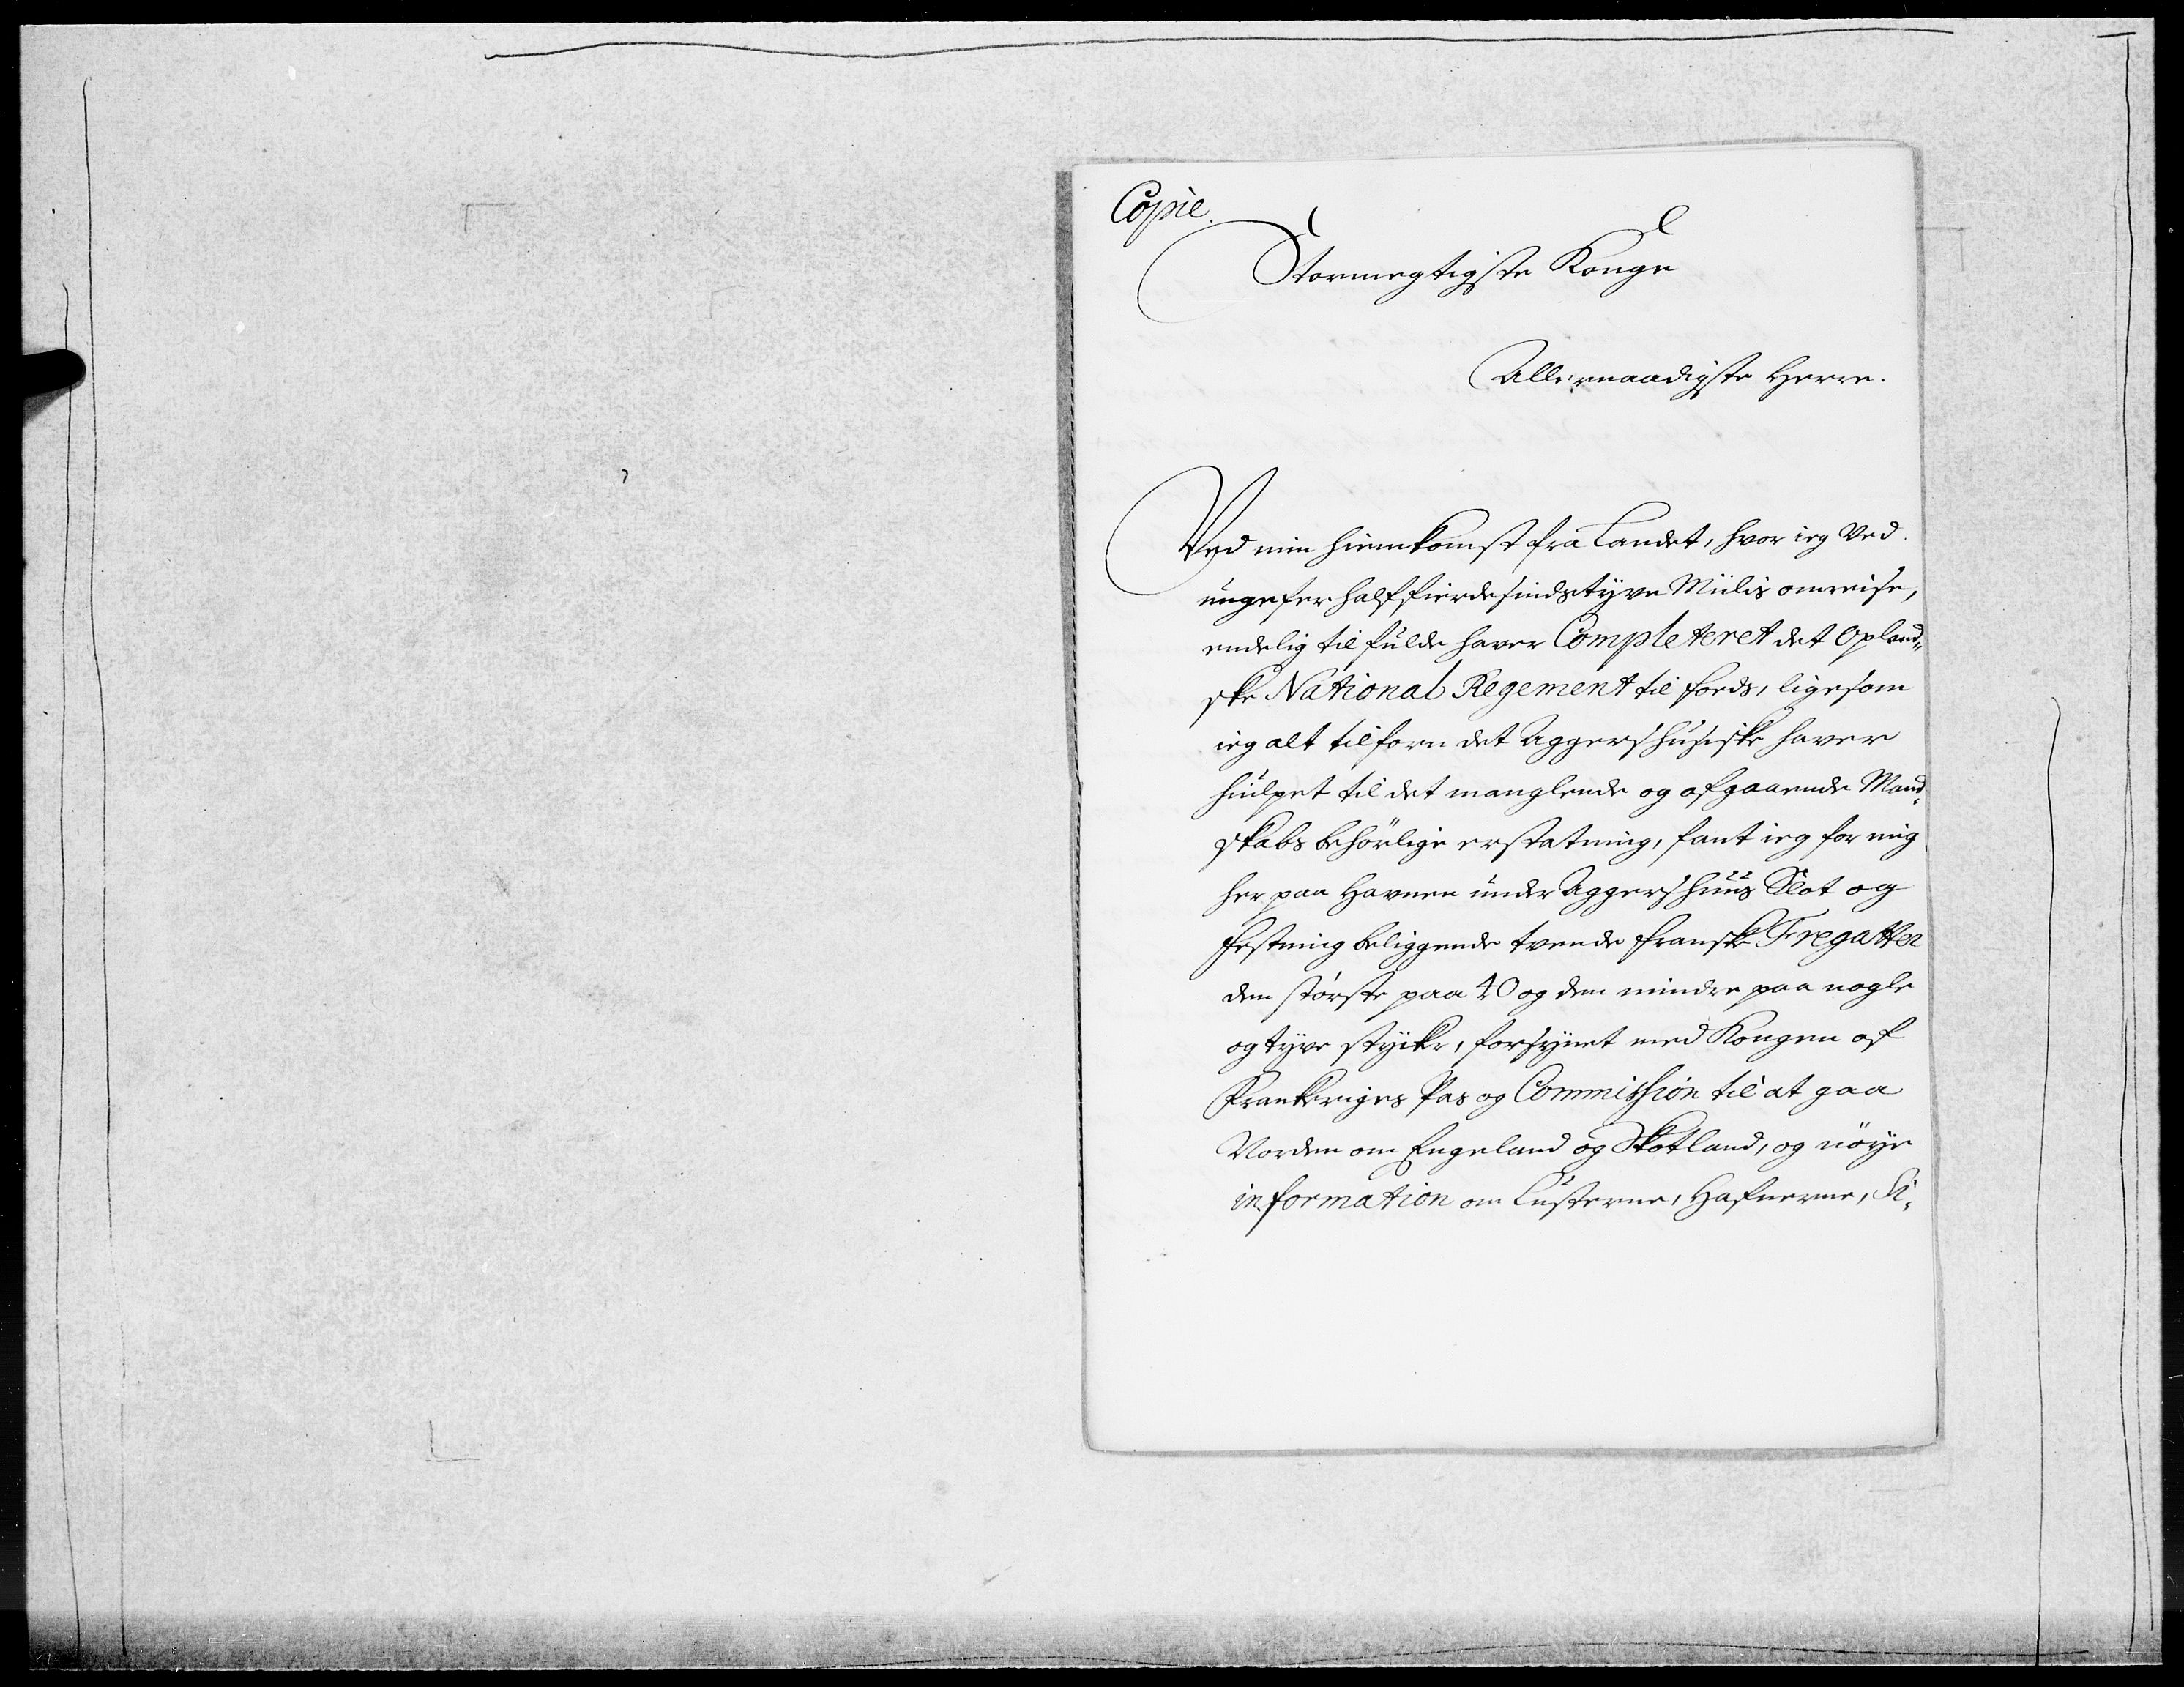 Copie.
Stormegtigste Konge
Allernaadigste Herre.
Ved min hiemkomst fra Landet, hvor ieg Ved
ungefer halffierdesindstyve Miilis omreise,
endelig til fulde haver Completeret det Opland„
ske National Regement til foeds, ligesom
ieg alt tilforn det Aggershusiske haver
hiulpet til det manglende og afgaaende Mand„
skabs behörlige erstatning, fant ieg for mig
her paa Havnen under Aggershuus Slot og
Festning beliggende tvende franske Fregatter
den störste paa 40 og den mindre paa nogle
og tyve stycke, forsynet med Kongen af
Frankeriges Pas og Commission til at gaa
Norden om Engeland og Skotland, og nöye
information om Custerne, Hafnerne, Si„